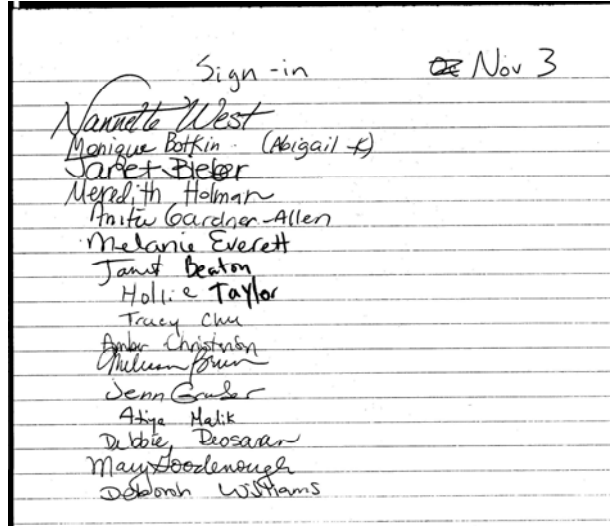 Sign-in Nov 3
Nannette West
Monique Botkin (Abigail K)
Janet Bieber
Meredith Holman
Anita Gardner-Allen
Melanie Everett
Janet Beaton
Hollie Taylor
Tracy Chu
Amber Christenson
Jenn Gruber
Atiya Malik
Debbie Deosaran
Mary Goodenough
Deborah Williams